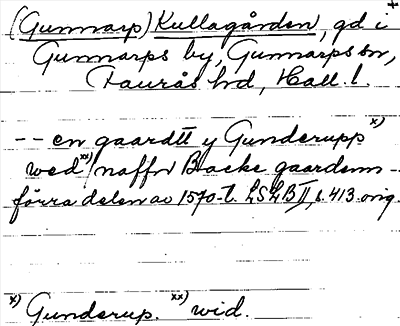 (Gunnarp) Kullagården, gd i
Gunnarps by, Gunnarps sn,
Faurås hd, Hall. l.
-- en gaardtt y Gunderupp x)
wed xx) naffn Backe gaardenn -
förra delen av 1570-t. LSLB II, s. 413. orig.
x) Gunderup. xx) wid.